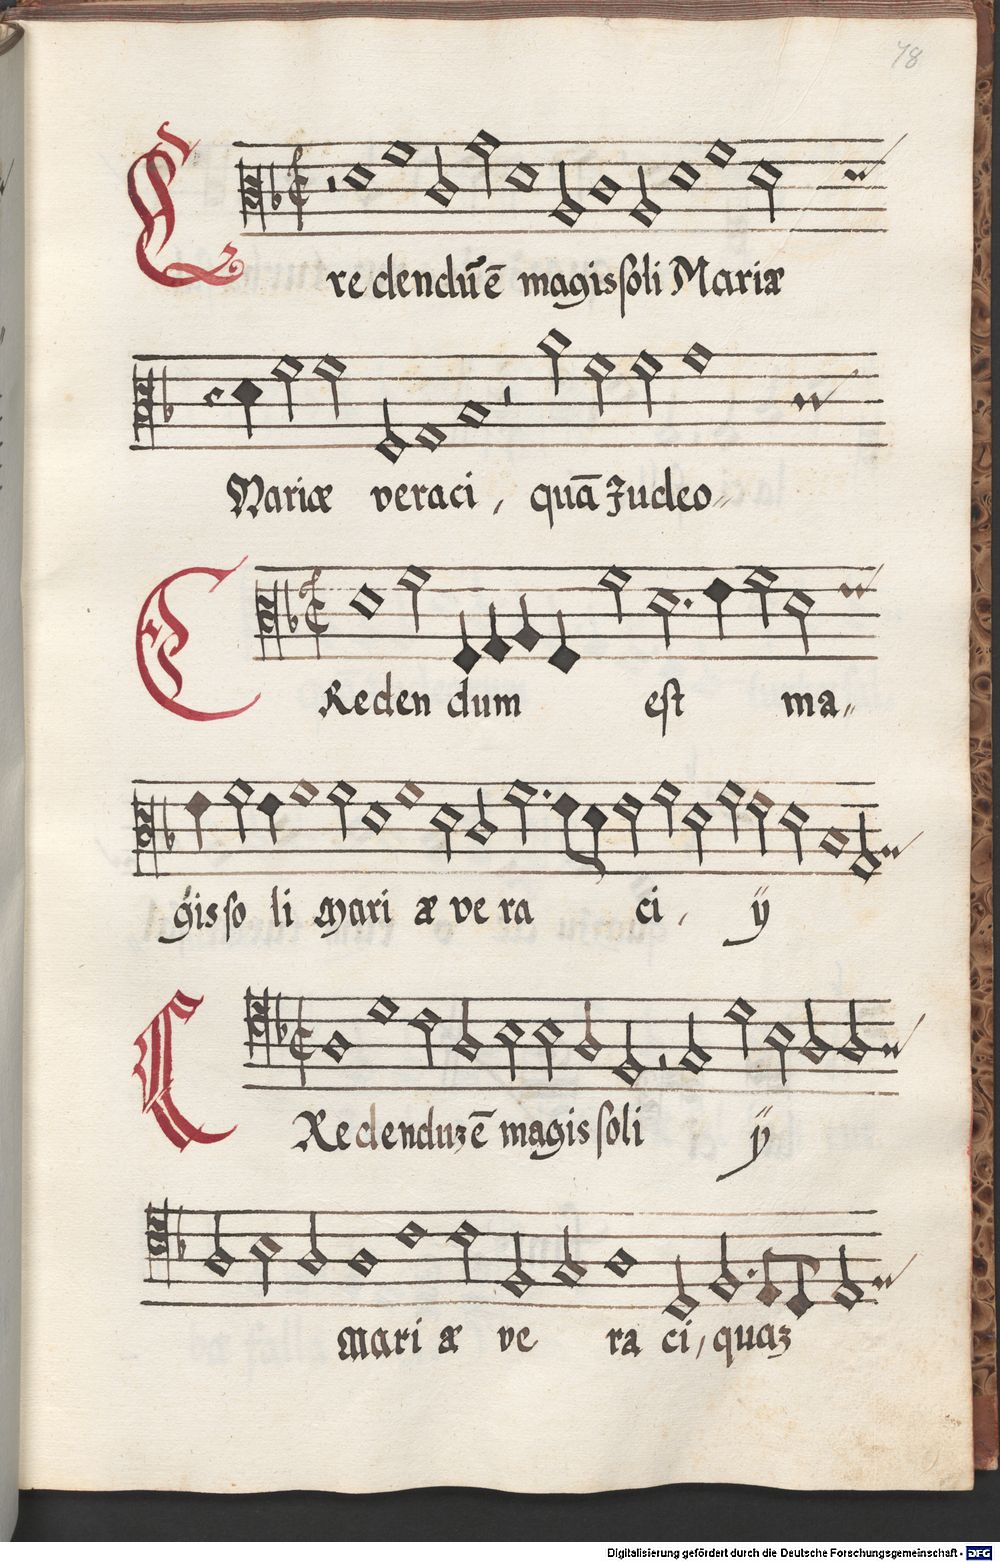 78
Credendū ē magis soli Mariæ
Mariæ veraci, quā Judeo
CRedendum est ma
gis soli Mariæ veraci, ij
CRedenduz ē magis soli ij
Mariæ veraci, quaz
Digitalisierung gefördert durch die Deutsche Forschungsgemeinschaft - DFG